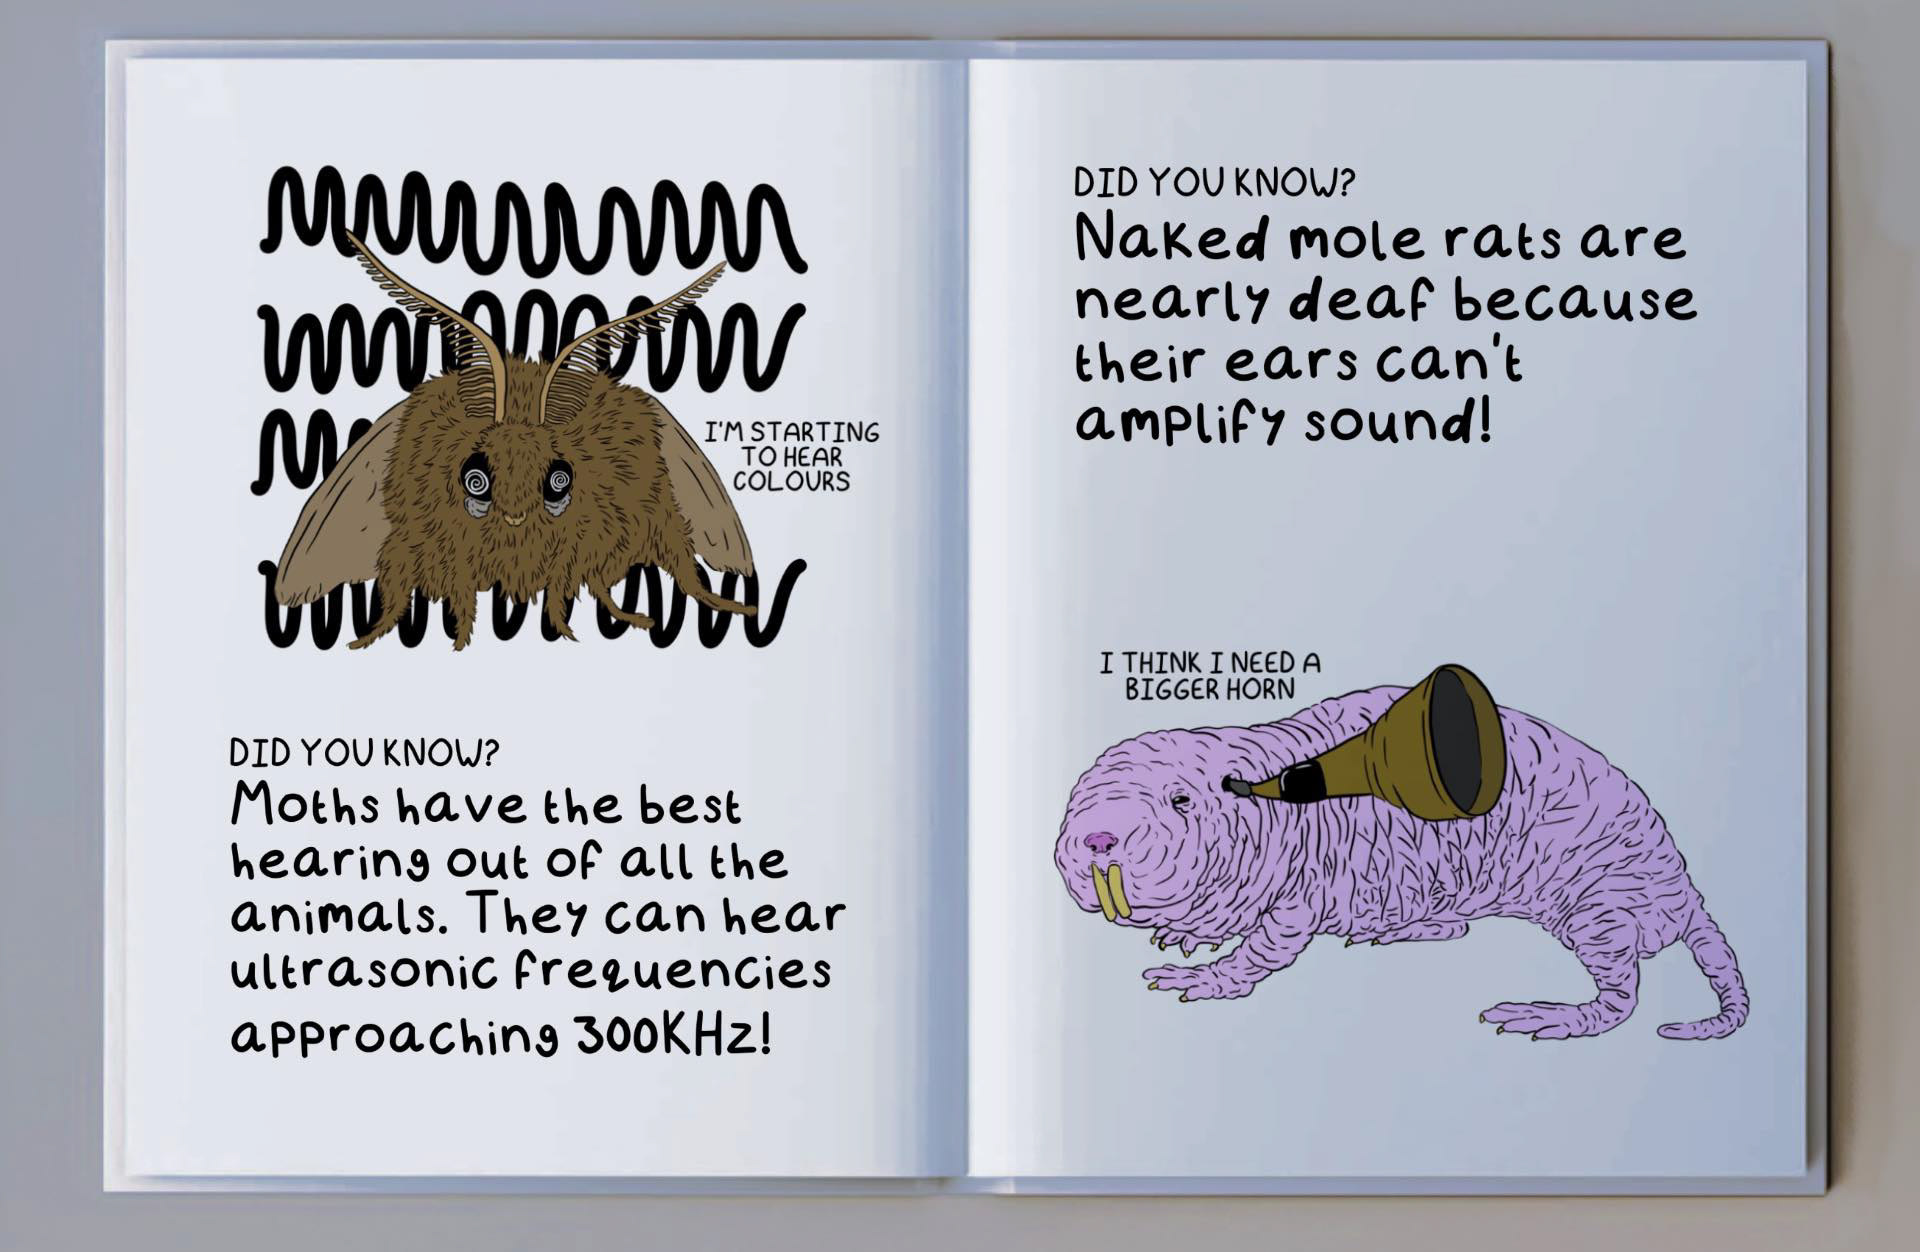 I'M STARTING
TO HEAR
COLOURS
DID YOU KNOW?
Moths have the best
hearing out of all the
animals. They can hear
ultrasonic frequencies
approaching 300KHz!
DID YOU KNOW?
Naked mole rats are
nearly deaf because
their ears can't
amplify sound!
I THINK I NEED A
BIGGER HORN